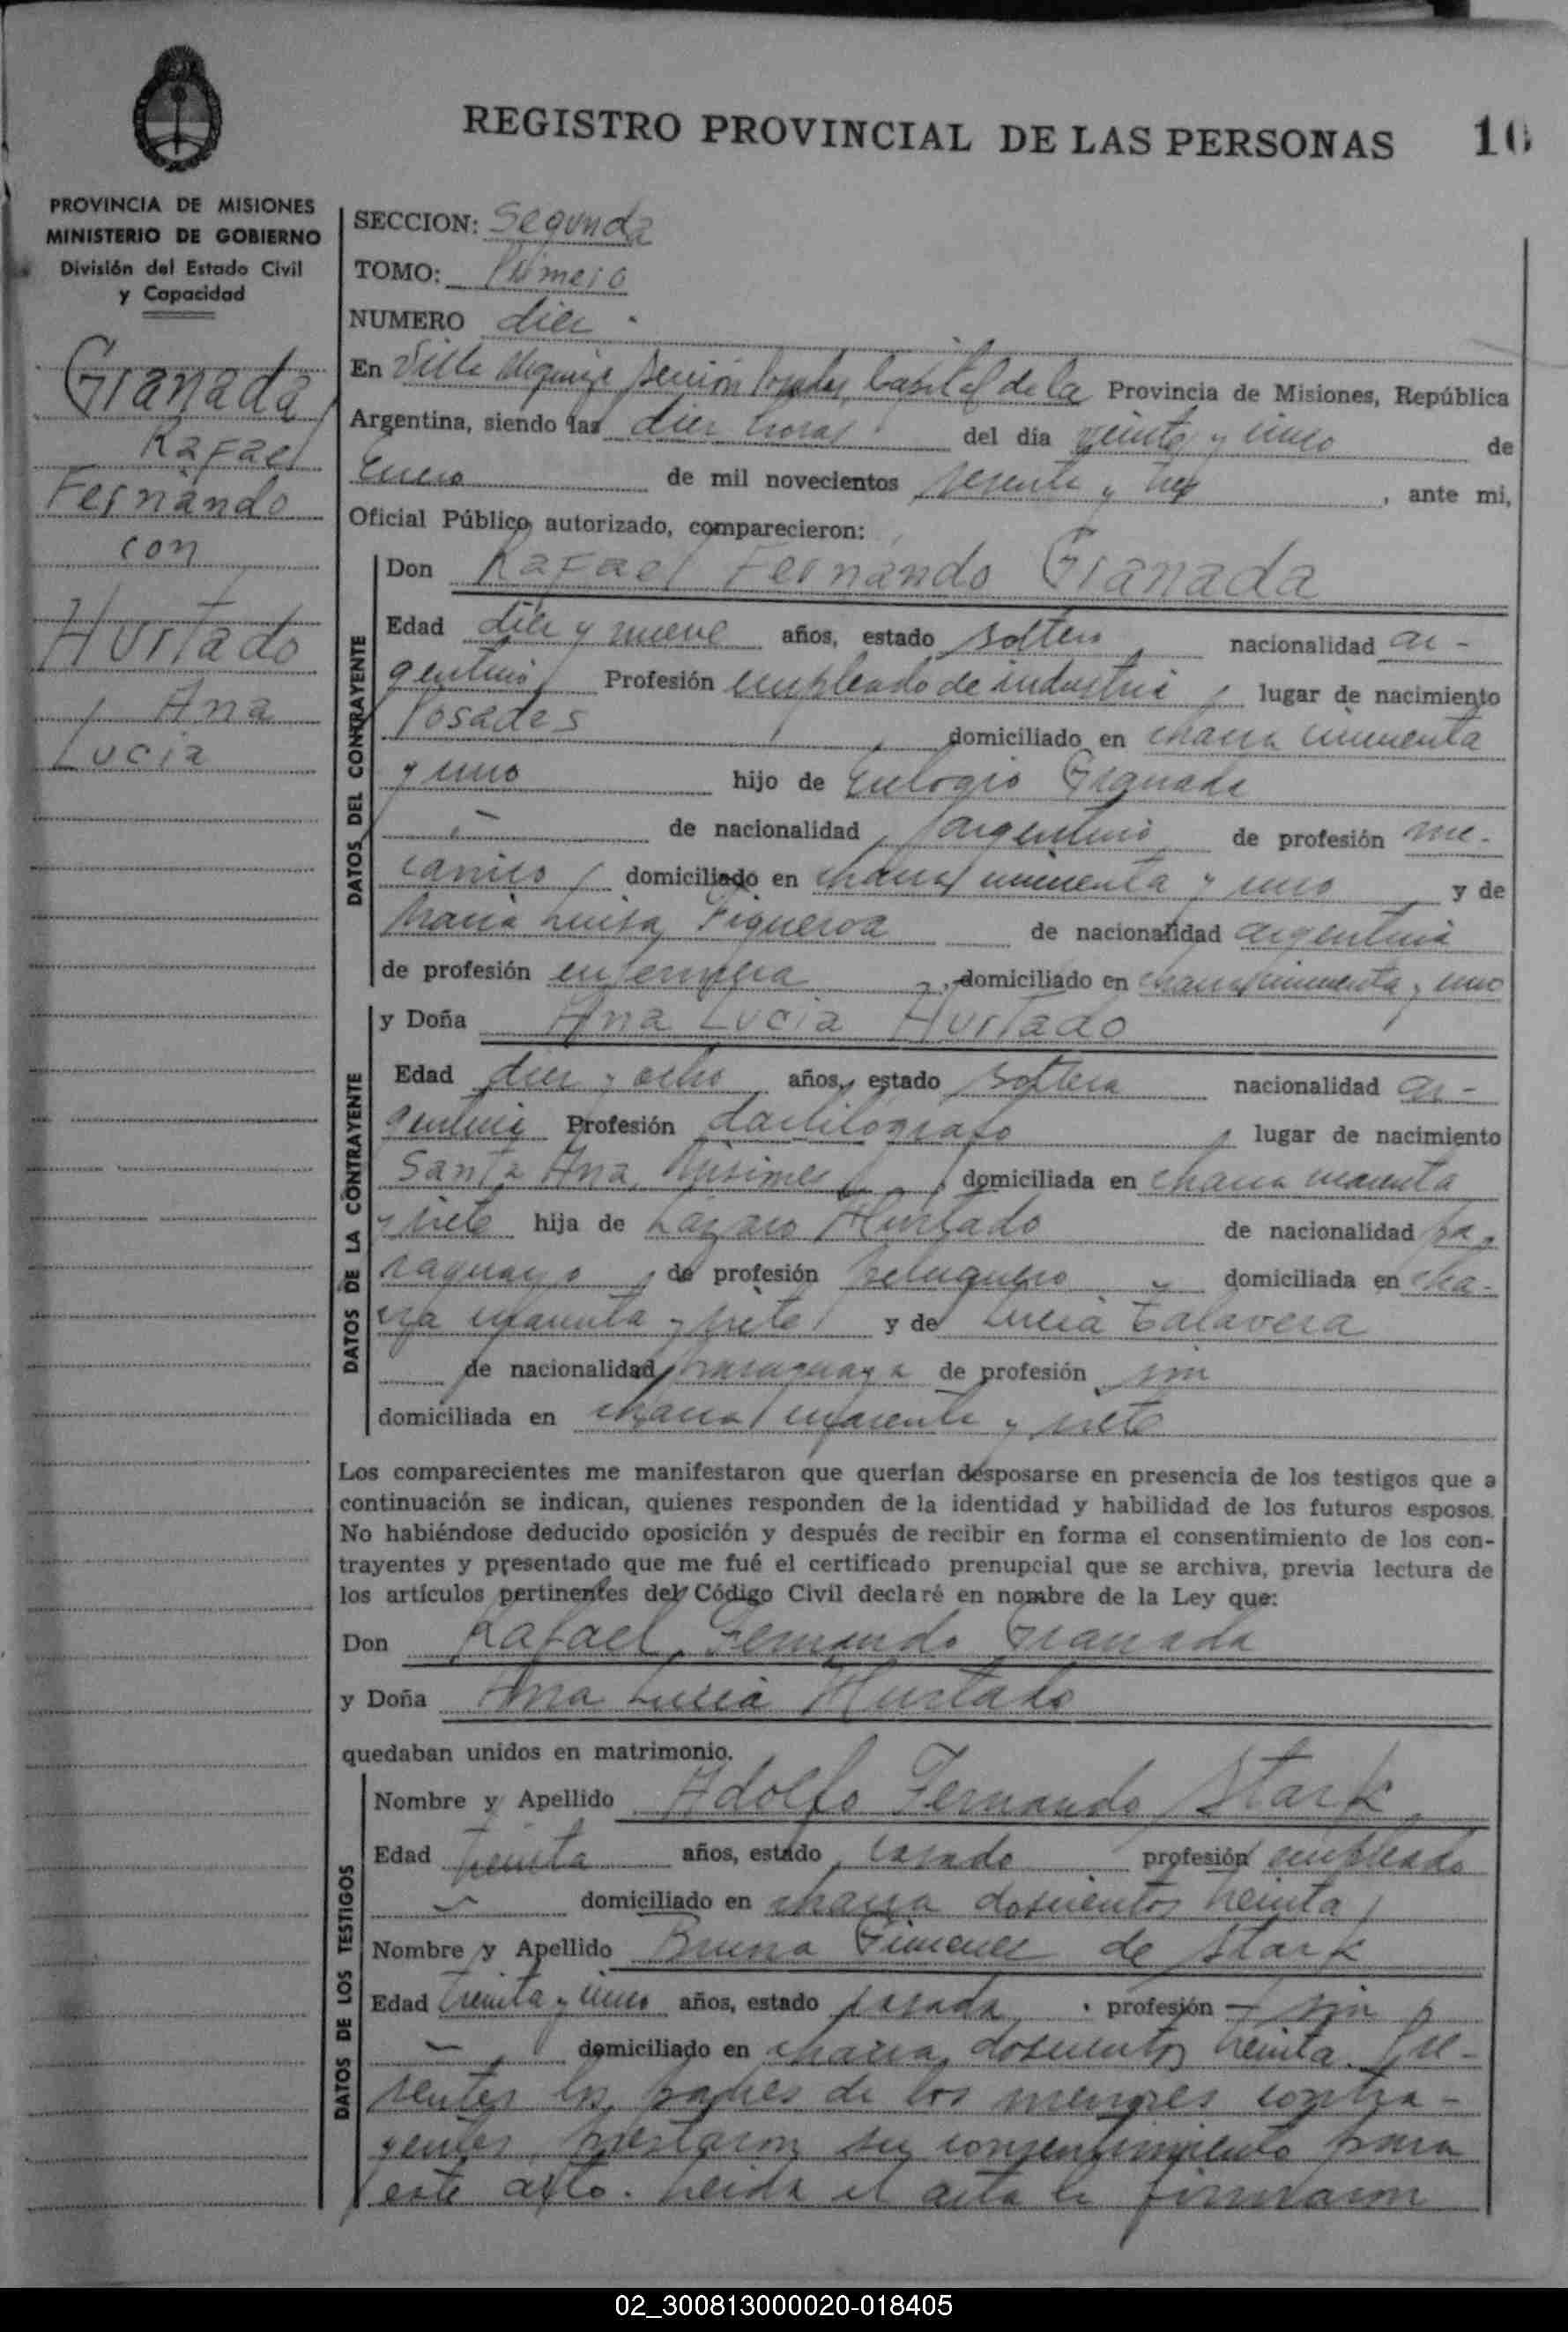 REGISTRO PROVINCIAL DE LAS PERSONAS 10
PROVINCIA DE MISIONES
MINISTERIO DE GOBIERNO
División del Estado Civil
y Capacidad
Granada
Rafael
Fernando
con
Hurtado
Ana
Lucia
SECCION: Segunda
TOMO: Primero
NUMERO diez
En Villa Urquiza sección Posadas, Capital de la Provincia de Misiones, República
Argentina, siendo las diez horas del día veinte y cinco de
Enero de mil novecientos sesenta y tres, ante mi,
Oficial Público autorizado, comparecieron:
DATOS DEL CONTRAYENTE
Don Rafael Fernando Granada
Edad diez y nueve años, estado soltero nacionalidad ar-
gentino, Profesión empleado de industria, lugar de nacimiento
Posadas, domiciliado en chacra cincuenta
y uno hijo de Eulogio Granada
- de nacionalidad argentino de profesión me-
canico, domiciliado en chacra cincuenta y uno y de
Maria Luisa Figueroa de nacionalidad argentina
de profesión enfermera, domiciliado en chacra cincuenta y uno
DATOS DE LA CONTRAYENTE
y Doña Ana Lucia Hurtado
Edad diez y ocho años, estado soltera nacionalidad ar-
gentina Profesión dactilógrafo, lugar de nacimiento
Santa Ana, Misiones, domiciliada en chacra cuarenta
y siete hija de Lázaro Hurtado de nacionalidad pa-
raguayo, de profesión peluquero domiciliada en cha-
cra cuarenta y siete y de Lucia Talavera
de nacionalidad paraguaya de profesión sin
domiciliada en chacra cuarenta y siete
Los comparecientes me manifestaron que querían desposarse en presencia de los testigos que a
continuación se indican, quienes responden de la identidad y habilidad de los futuros esposos.
No habiéndose deducido oposición y después de recibir en forma el consentimiento de los con-
trayentes y presentado que me fué el certificado prenupcial que se archiva, previa lectura de
los artículos pertinentes del Código Civil declaré en nombre de la Ley que:
Don Rafael Fernando Granada
y Doña Ana Lucia Hurtado
quedaban unidos en matrimonio.
DATOS DE LOS TESTIGOS
Nombre y Apellido Adolfo Fernando Stark
Edad treinta años, estado casado profesión empleado
domiciliado en chacra doscientos treinta
Nombre y Apellido Bruna Gimenez de Stark
Edad treinta y cinco años, estado casada profesión - sin
- domiciliado en chacra doscientos treinta. Pre-
sentes los padres de los menores contra-
yentes prestaron su consentimiento para
este acto. Leida el acta la firmaron
02_300813000020-018405